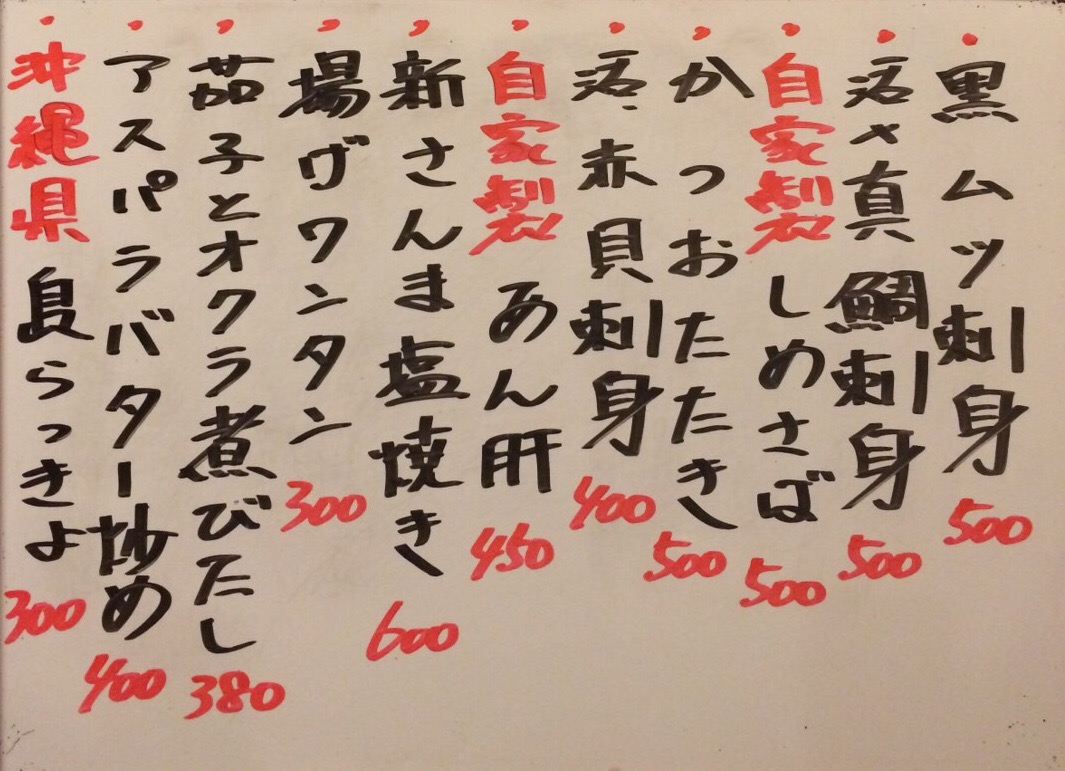 黒ムツ刺身 500
活〆真鯛刺身 500
自家製 しめさば 500
かつおたたき 500
活赤貝刺身 400
自家製 あん肝 450
新さんま塩焼き 600
揚ゲワンタン 300
茄子とオクラ煮びたし 380
アスパラバター炒め 400
沖縄県 島らっきょ 300